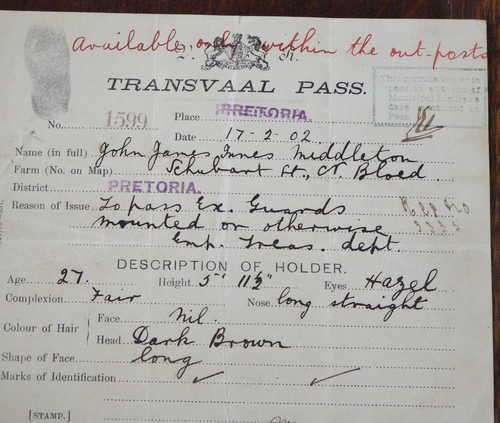 Available only within the out-posts
TRANSVAAL PASS.
No. 1599 Place PRETORIA.
Date 17-2-02.
Name (in full) John James Innes Middleton
Farm (No. on Map) Schubart St., N. Bloed.
District PRETORIA.
Reason of Issue To pass Ex. Guards
mounted or otherwise
Emp. Treas. dept.
DESCRIPTION OF HOLDER.
Age 27. Height 5' 11½" Eyes Hazel
Complexion Fair Nose long straight
Colour of Hair
Face Nil.
Head Dark Brown
Shape of Face long
Marks of Identification
[STAMP.]